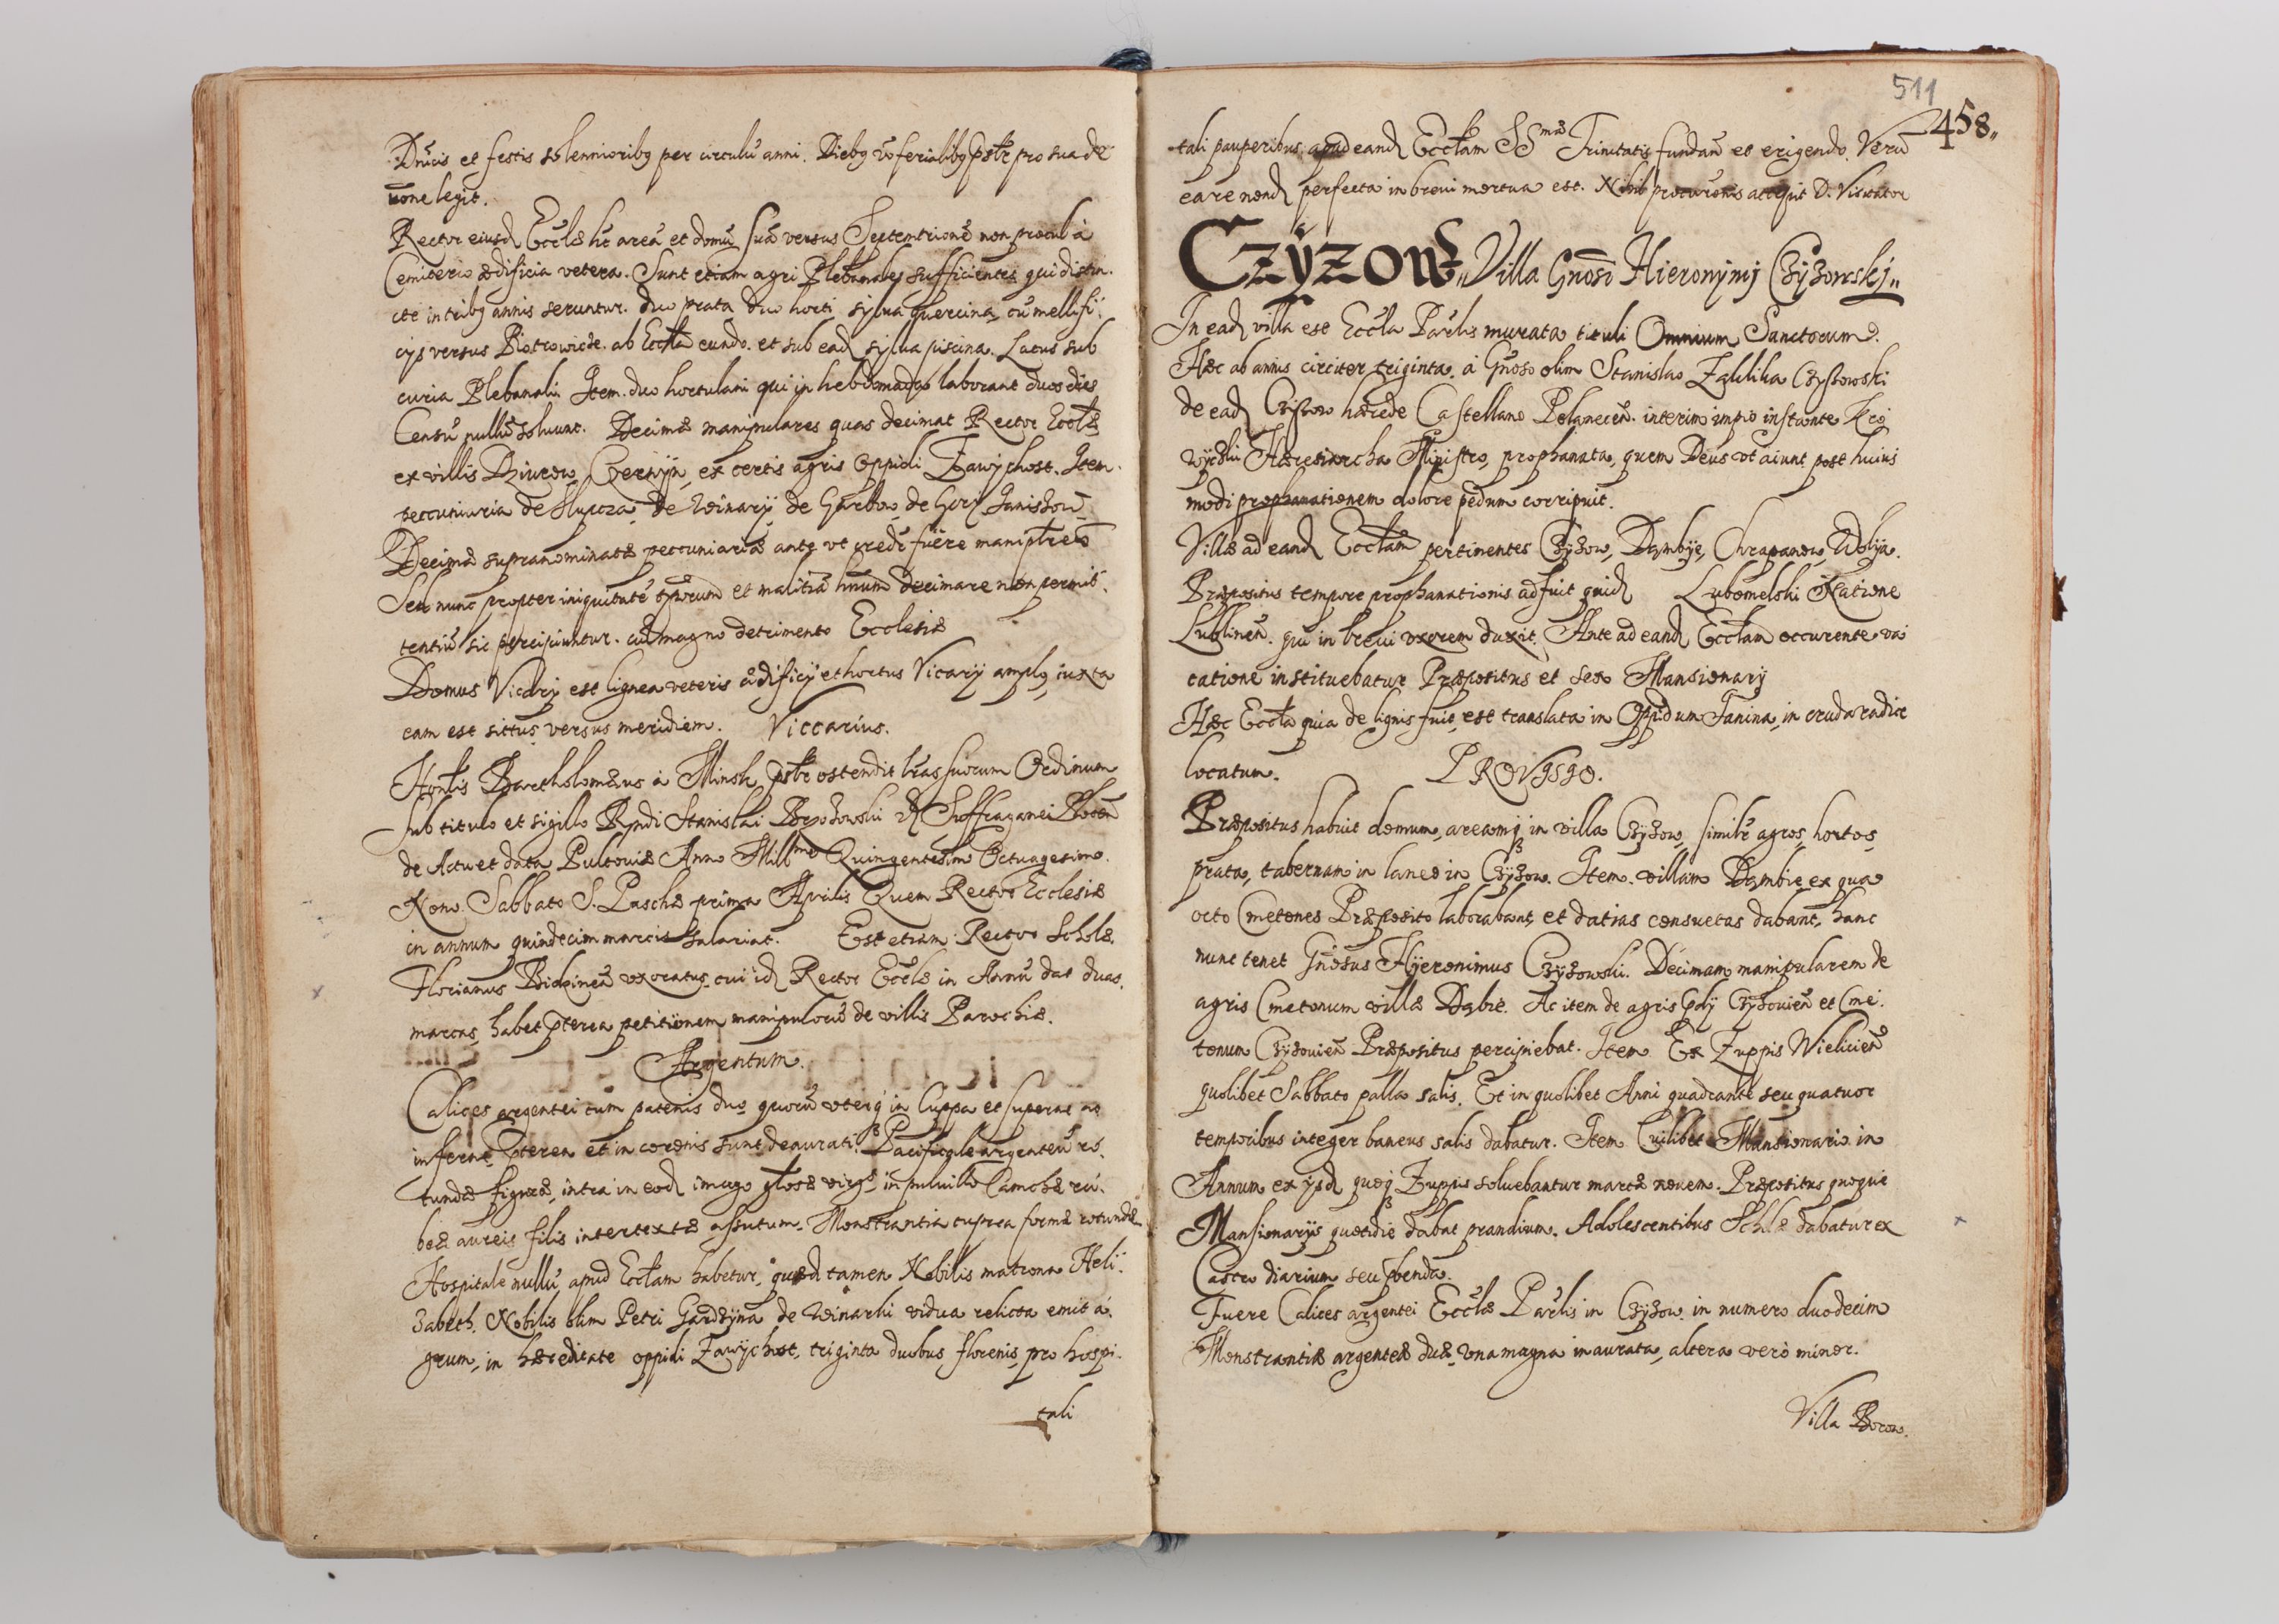 Dnicis et festis solennioribq per circulū anni. Diebq v̄o ferialibq Pstr pro sua de
uone legit.
Rector eiusd Eccłæ ht areā et domū suā versus Septemtrionē non procul à
Cemiterio ædificia vetera. Sunt etiam agri Plebanales sufficientes qui distin.
cte in tribq annis seruntur. duo prata duo horti sylua quercina, cū mellifi.
cijs versus Piotrowicze. ab Eccła eundo. et sub ead sylua piscina. Lacus sub
curia Plebanali Item. duo hortulani qui in hebdomada laborant duos dies
Censū nullū soluunt. Decimæ manipulares quas decimat Rector Eccłæ
ex villis Dziurow, Czerwijn, ex certis agris Oppidi Zawijchost. Item.
peccuniaria de Slupcza, de Winarij de Garbow de Gorij Janiszow
Decimæ supranominatæ peccuniariæ ante vt credr fuere maniplres
Sed nunc propter iniquitatē tporum et malitiā hnum decimare non permit.
tentiū sic percipiuntur. cū magno detrimento Ecclesiæ
Domus Vicarij est lignea veteris ædificij et hortus Vicarij amplq iuxta
eam est situs versus meridiem. Viccarius.
Honlis Bartholomæus à Minsk Pstr ostendit lras suorum Ordinum
sub titulo et sigillo Rndi Stanislai Brzozowski Suffraganei Plocen
de Actu et data Pultouiæ Anno Mill^mo Quingentesimo Octuagesimo
Nono. Sabbato S. Paschæ prima Aprilis Quem Rector Ecclesiæ
in annum quindecim marcis salariat. Est etiam Rector Scholæ.
Florianus uxoratus cui id Rector Eccłæ in Annū dat duas
marcas, habet pterea petitionem manipulorū de villis Parochiæ.
Argentum.
Calices argentei cum patenis duo quorū vterq in Cuppa et superne ac
inferne pterea et in coronis sunt deaurati. Pacificale argenteū ro.
tundæ figuræ, intra in eod imago głosæ virgs in puluillo Camchæ ru.
beæ aureis filis intertextæ assutum. Monstrantia cuprea formæ rotundæ
Hospitale nullū apud Eccłam habetur, quod tamen Nobilis matrona Heli.
zabeth. Nobilis olim Petri Gardzijna de Winarki vidua relicta emit a.
grum, in hæreditate oppidi Zawijchost, triginta duobus florenis, pro hospi.
tali
511
458„
tali pauperibus apud eand Eccłam SS^mæ Trinitatis fundan et erigendo. Verū
ea re nond perfecta in breui mortua est. Nihil accepit D. Visitator
Czÿzow„ Villa Gnosi Hieronymj Czÿzowskj„
In ead villa est Eccła Parłis murata tituli Omnium Sanctorum.
Hæc ab annis circiter triginta. à Gnoso olim Stanislao Zaklika Czyzowski
de ead Czisow hærede Castellano Polanecen. interim impio instante Kro
wijczki Hæresiarcha Ministro, prophanata, quem Deus vt aiunt post huius
modi prophanationem dolore pedum corripuit.
Villæ ad eand Eccłam pertinentes Czyzow, Dąmbije, Chrapanow, Wolija.
Præpositus tempore prophanationis adfuit quid Lubomelski Natione
Lublinen. qui in breui vxorem duxit. Ante ad eand Eccłam occurente va
catione instituebatur Præpositus et sex Mansionarij
Hæc Eccła quia de lignis fuit est translata in Oppidum Janina, in cruda radice
locatum. PROVISIO.
Præpositus habuit domum, areamq in villa Czyzow, similr agros, hortos,
prata, tabernam in laneo in Czyzow. Item. villam Dąmbie ex qua
octo Cmetones Præposito laborabant, et datias consuetas dabant, hanc
nunc tenet Gnosus Hijeronimus Czyzowski. Decimam manipularem de
agris Cmetonum villæ Dąbie. Ac item de agris Czyzouien et Cme.
tonum Czyzouien Præpositus percipiebat. Item Ex Zuppis Wielicien
quolibet Sabbato palla salis. Et in quolibet Anni quadrante seu quatuor
temporibus integer bancus salis dabatur. Item Cuilibet Mansionario in
Annum ex ijsd quoq Zuppis soluebantur marcæ nouem. Præpositus quoque
Mansionarijs quotidie dabat prandium. Adolescentibus Scholæ dabatur ex
Castro diarium seu pbenda.
Fuere Calices argentei Eccłæ Parłis in Czyzow in numero duodecim
Monstrantiæ argenteæ duæ, vna magna inaurata, altera verò minor.
Villa Borow.